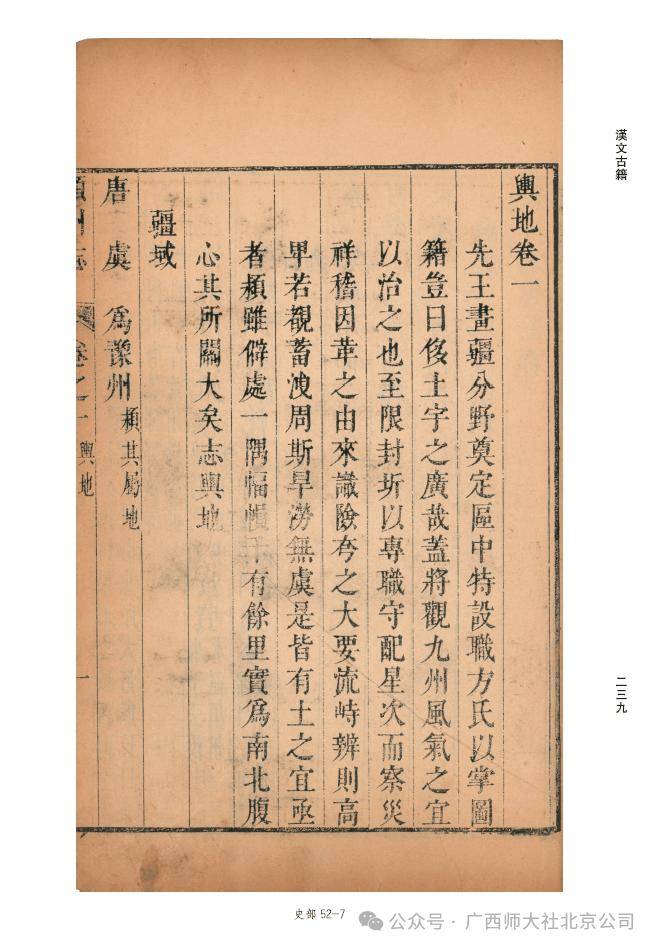 漢文古籍
二三九
輿地卷一
先王畫疆分野奠定區中特設職方氏以掌圖
籍豈曰侈土宇之廣哉蓋將觀九州風氣之宜
以治之也至限封圻以專職守配星次而察災
祥稽因革之由來識險夸之大要流峙辨則高
早若觀蓄洩周斯旱澇無虞是皆有土之宜亟
者潁雖僻處一隅幅幀千有餘里實為南北腹
心其所關大矣志輿地
疆域
唐虞 為豫州 潁其屬地
潁州志 卷之一 輿地 一
史部 52-7
公众号 · 广西师大社北京公司